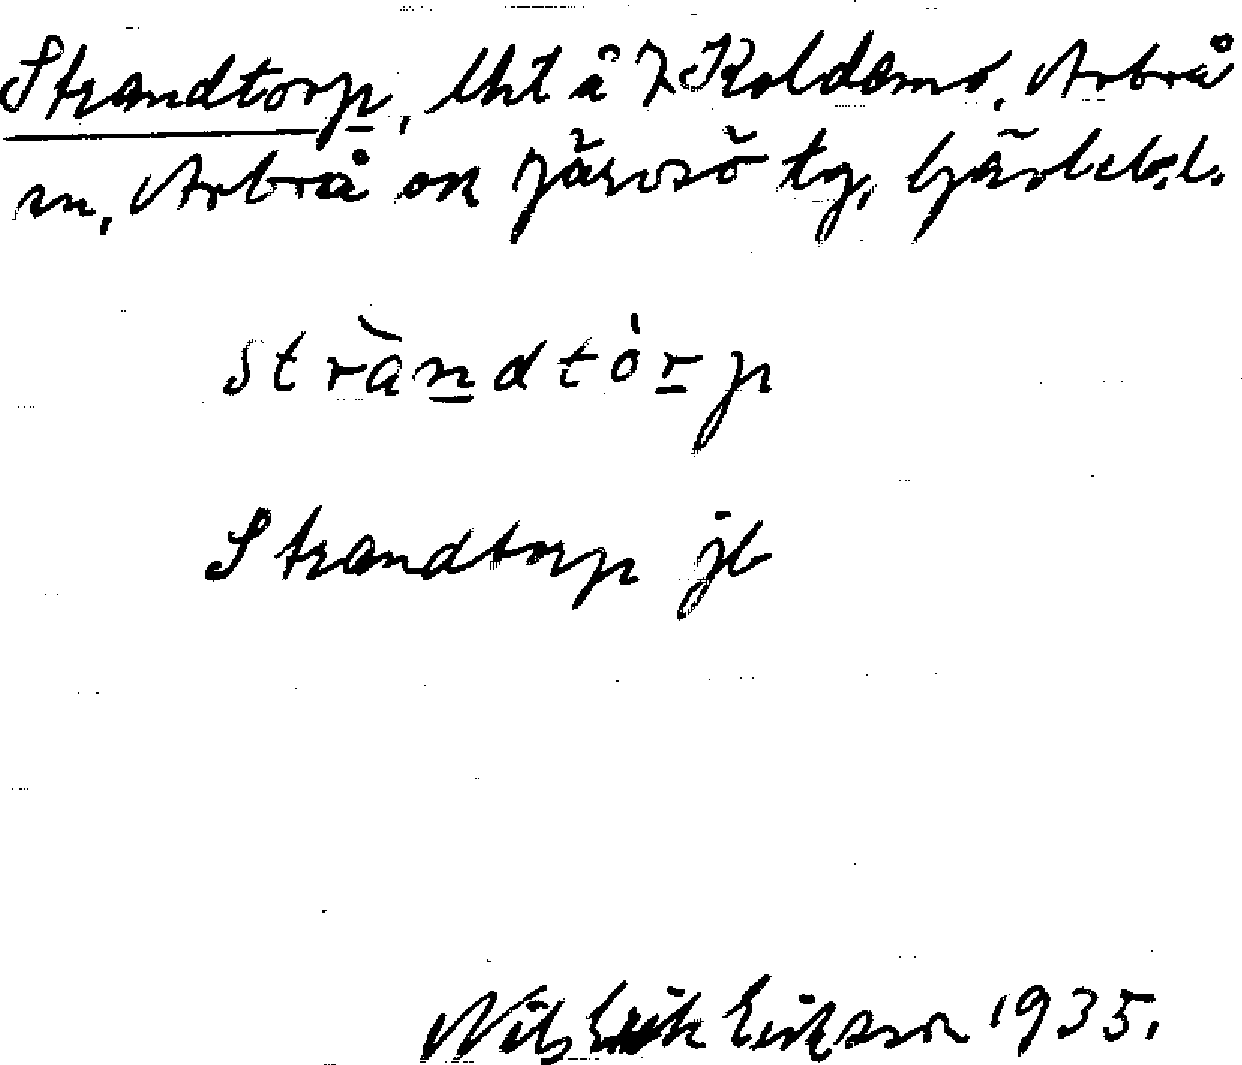 Strandtorp, lht å 7 Koldemo, Arbrå
sn, Arbrå ok Järvsö tg, Gävleb.l.
stràndtórp
Strandtorp jb
Nils Erik Eriksson 1935.